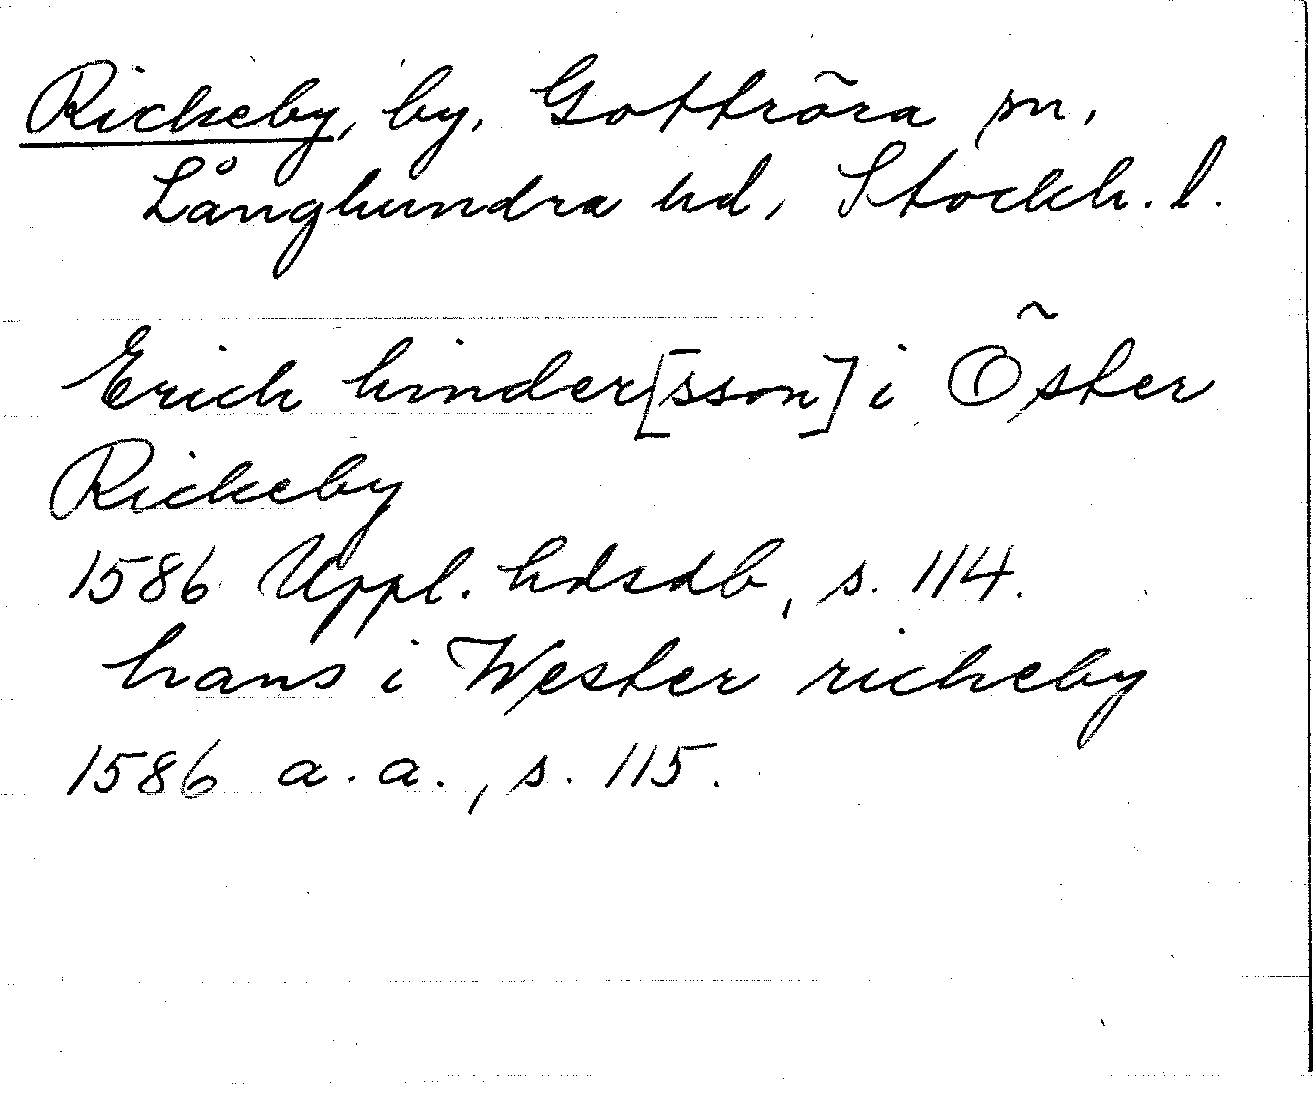 Rickeby, by, Gottröra sn,
Långhundra hd, Stockh. l.
Erich hinder[sson] i Öster
Rickeby
1586 Uppl. hdsdb, s. 114.
hans i Wester rickeby
1586 a. a., s. 115.